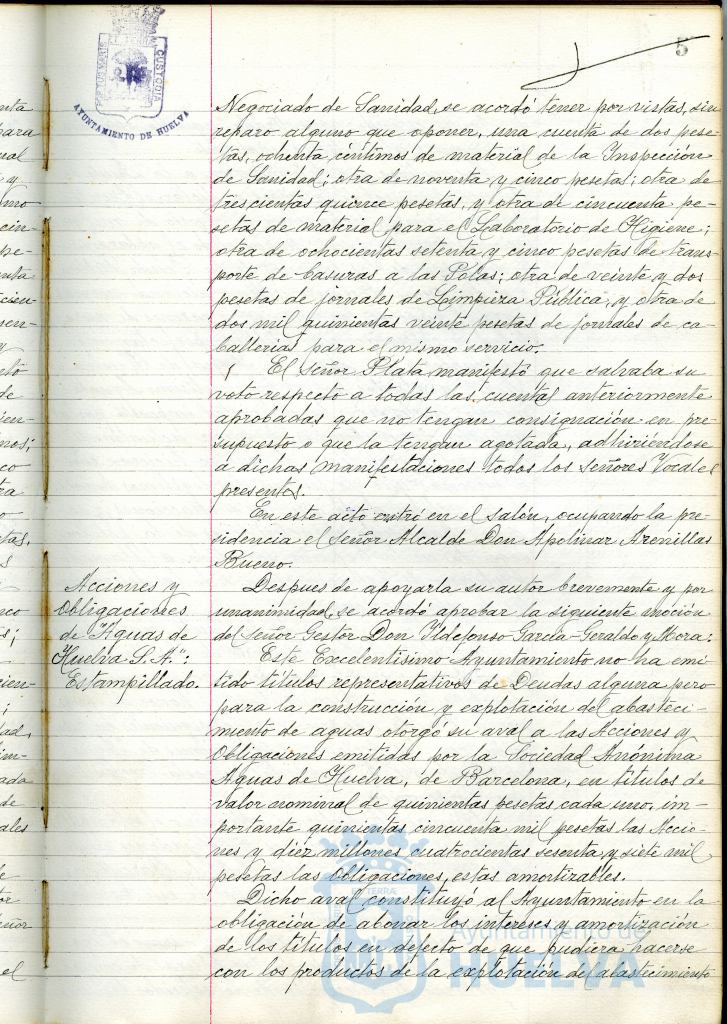 5
PORTUS MARIS
CUSTODIA
AYUNTAMIENTO DE HUELVA
Negociado de Sanidad, se acordó tener por vistas, sin
reparo alguno que oponer, una cuenta de dos pese
tas, ochenta céntimos de material de la Inspección
de Sanidad; otra de noventa y cinco pesetas; otra de
trescientas quince pesetas, y otra de cincuenta pe-
setas de material para el Laboratorio de Higiene;
otra de ochocientas setenta y cinco pesetas de trans-
porte de basuras a las Islas; otra de veinte y dos
pesetas de jornales de Limpieza Pública, y otra de
dos mil quinientas veinte pesetas de jornales de ca-
ballerías para el mismo servicio.
El Señor Plata manifestó que salvaba su
voto respecto a todas las cuentas anteriormente
aprobadas que no tengan consignación en pre
supuesto o que la tengan agotada, adhiriéndose
a dichas manifestaciones todos los señores Vocales
presentes.
En este acto entró en el salón, ocupando la pre
sidencia el Señor Alcalde Don Apolinar Arenillas
Bueno.
Acciones y
Obligaciones
de "Aguas de
Huelva S.A.":
Estampillado.
Despues de apoyarla su autor brevemente y por
unanimidad, se acordó aprobar la siguiente moción
del Señor Gestor Don Ildefonso García-Geraldo y Mora:
Este Excelentisimo Ayuntamiento no ha emi
tido títulos representativos de Deudas alguna pero
para la construcción y explotación del abasteci-
miento de aguas otorgó su aval a las Acciones y
Obligaciones emitidas por la Sociedad Anónima
Aguas de Huelva, de Barcelona, en títulos de
valor nominal de quinientas pesetas cada uno, im-
portante quinientas cincuenta mil pesetas las Accio-
nes y diez millones cuatrocientas sesenta y siete mil
pesetas las obligaciones, estas amortizables.
Dicho aval constituyó al Ayuntamiento en la
obligación de abonar los intereses y amortización
de los títulos en defecto de que pudiera hacerse
con los productos de la explotación del abastecimiento
Ayuntamiento de
HUELVA